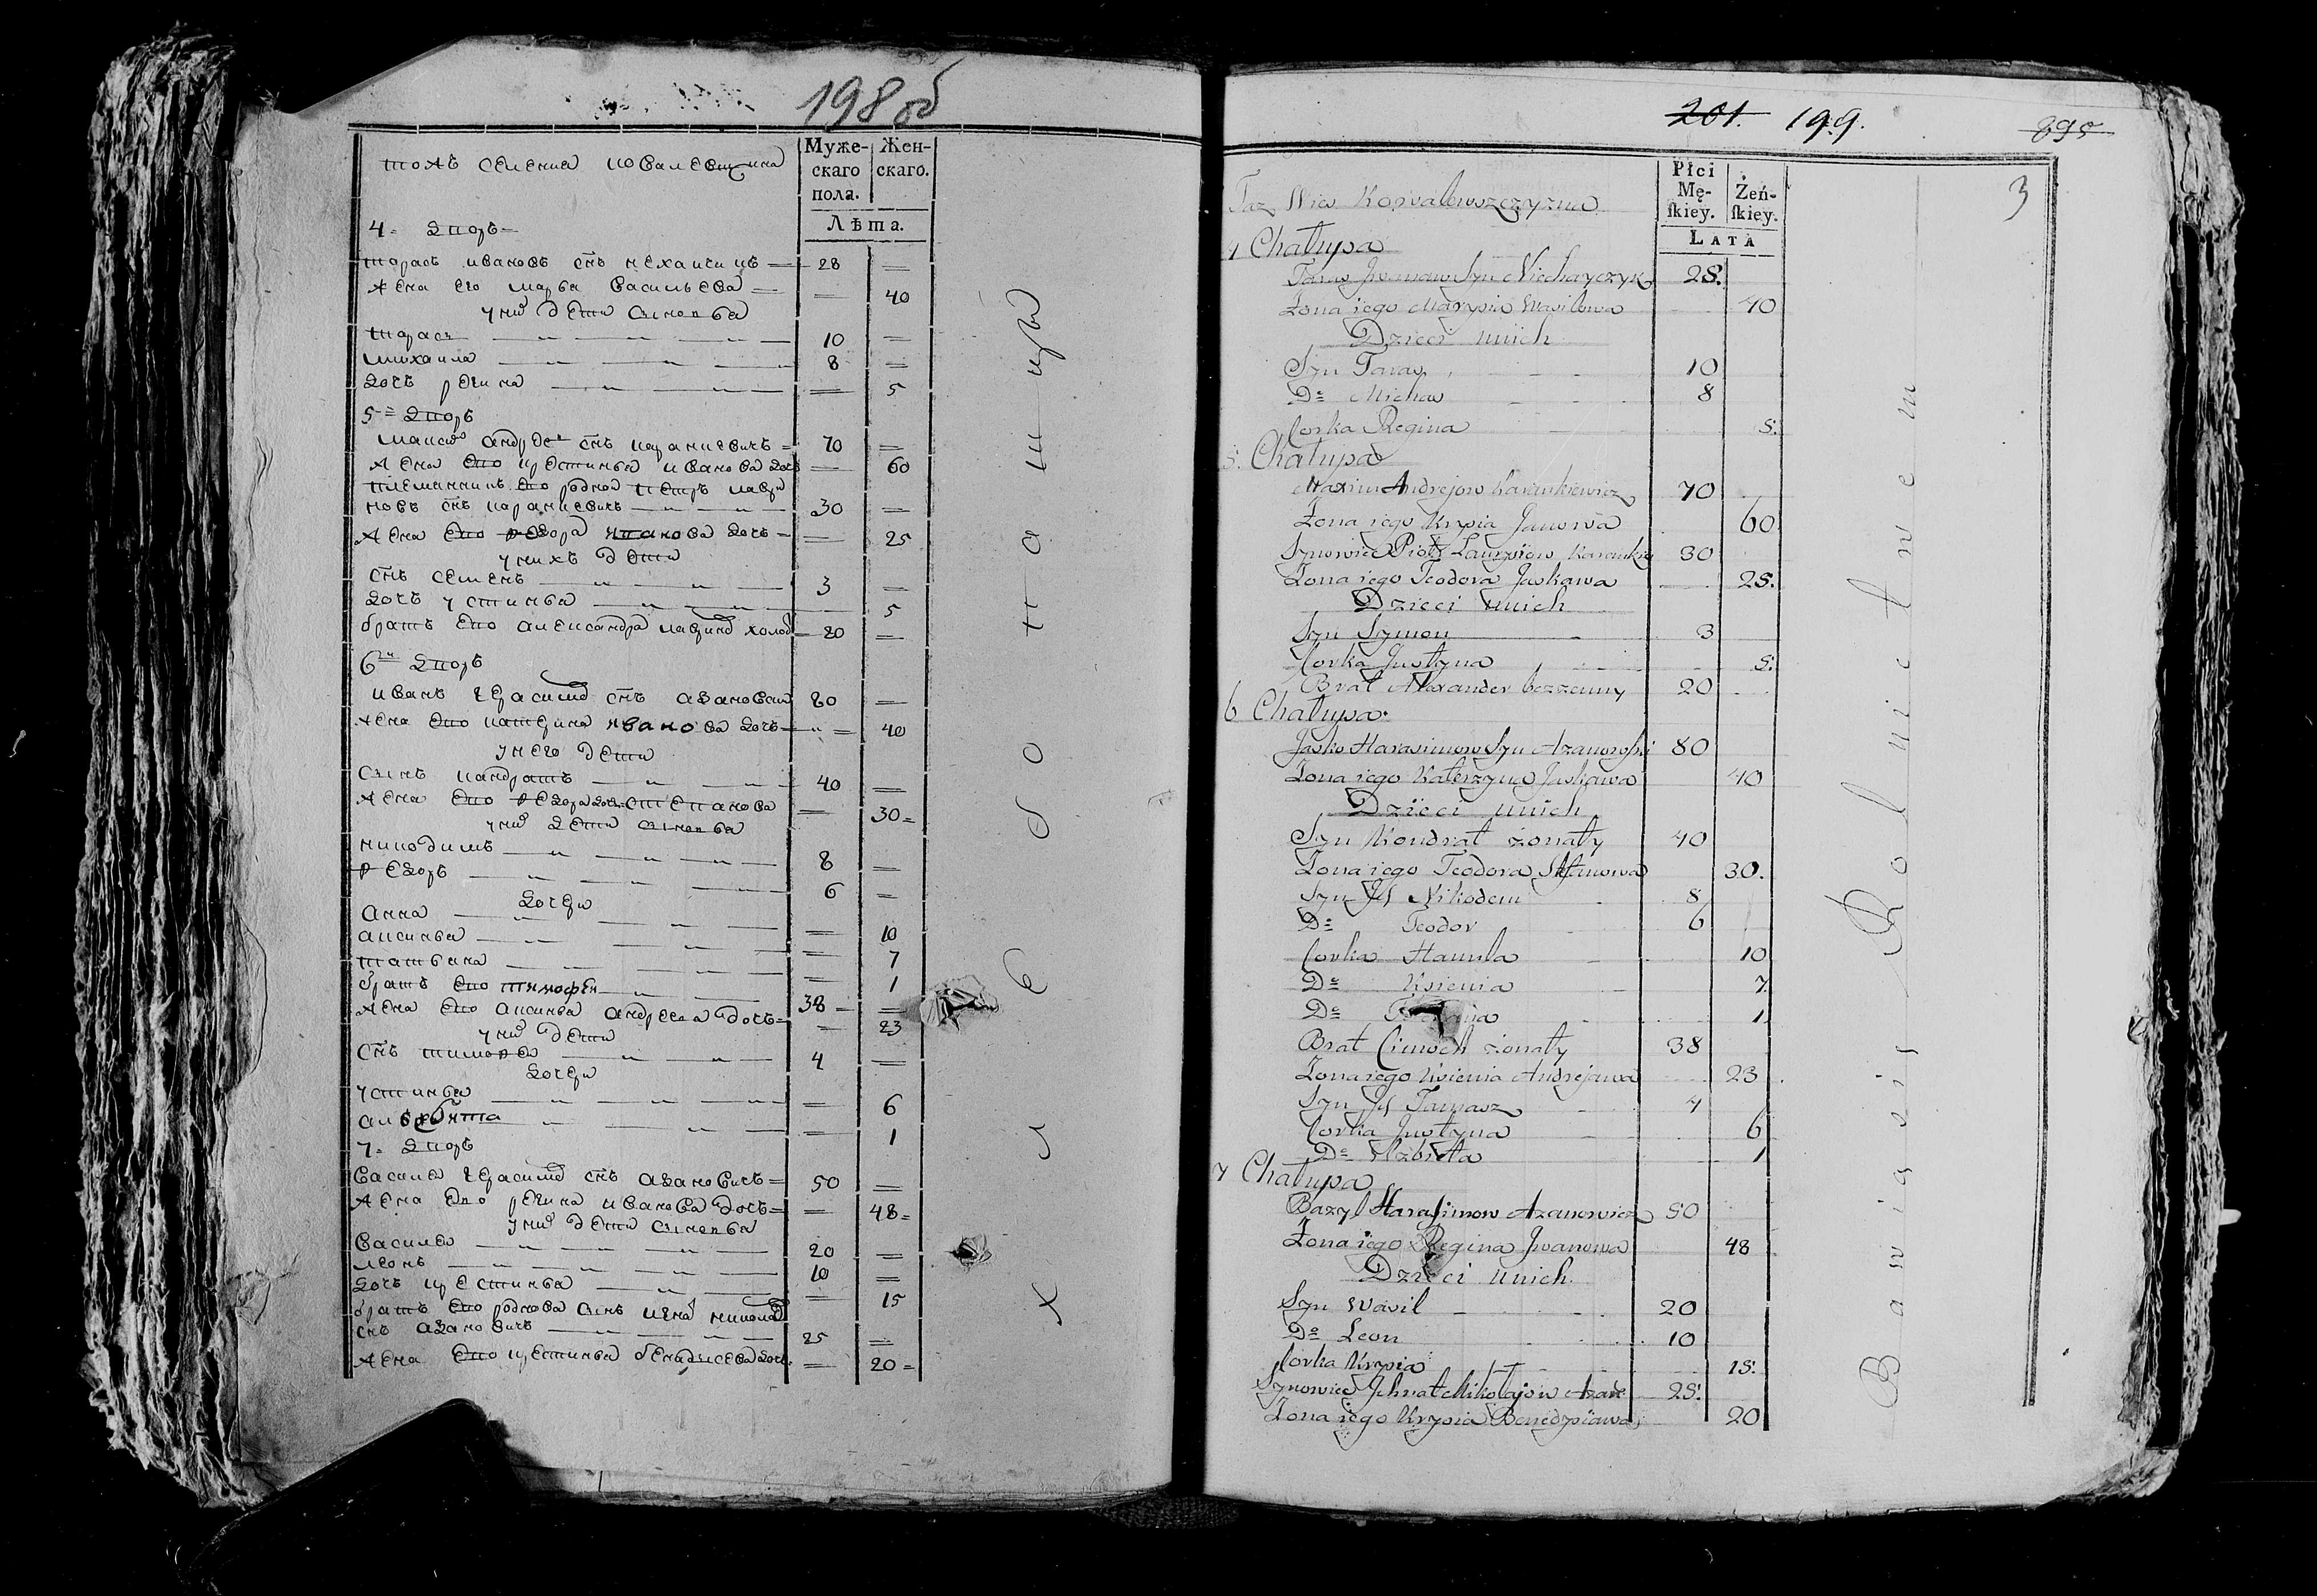 198 об
тожъ селения ковалевщина
Муже-
скаго
пола.
Жен-
скаго.
Лѣта.
4 = Дворъ
тарасъ ивановъ снъ нехайчикъ 28
Жена его марья васильева 40
у ниⷯ дети сыновья
тарасъ 10
михаила 8
дочь регина 5
5 = Дворъ
максиⷨ андрее снъ караниевичъ 70
Жена его кристинья иванова дочь 60
племянникъ его родной петръ лаври
новъ снъ караниевичъ 30
Жена его федора иванова дочь 25
у нихъ дети
снъ семенъ 3
дочь устинья 5
братъ его александра лавриноⷡ холоⷭ 20
6 Дворъ
иванъ герасимоⷡ снъ азановски 80
Жена его катерина иванова дочь 40
у него дети
сынъ кандратъ 40
Жена его федора дочь степанова 30
у ниⷯ дети сыновья
никодимъ 8
федоръ 6
дочери
анна 10
аксинья 7
татьяна 1
братъ его тимофей 38
Жена его аксинья андреева дочь 23
у ниⷯ дети
снъ тимофей 4
дочери
устинья 6
альжбита 1
7 = Дворъ
василей герасимоⷡ снъ азановичъ 50
Жена его регина иванова дочь 48
у ниⷯ дети сыновья
василей 20
леонъ 10
дочь кристинья 15
братъ его роднова сынъ игнаⷮ николаеⷡ
снъ азановичъ 25
Жена его кристинья бенадисева дочь 20
хлебопашцы
201. 199.
895
3
Taz Wieś Kowalewszczyzna
Płci
Mę-
ſkiey.
Żeń-
ſkiey.
LATA
4 Chałupa
Taras Jwanow Syn Niechayczyk 28.
Żona iego Marysia Wasilewa 40
Dzieci unich
Syn Taras 10
Dº Michaś 8
Corka Regina 5.
5. Chałupa
Maxim Andrejow Karankiewicz 70
Żona iego Krysia Janowa 60
Synowiec Piotr Ławryiow Karankie 30
Żona iego Teodora Jaskawa 25.
Dzieci unich
Syn Szymon 3
Corka Justyna 5.
Brat Alexander bezzenny 20
6 Chałupa
Jasko Harasimow Syn Azanowſki 80
Żona iego Katerzyna Jaskawa 40
Dzieci unich
Syn Kondrat żonaty 40
Żona iego Teodora Stefanowa 30.
Syn Jch Nikodem 8
Dº Teodor 6
Corka Hanula 10
Dº Ksienia 7
Dº 1
Brat Cimoch żonaty 38
Żona iego Ksienia Andrejawa 23
Syn Jch Tamasz 4
Corka Justyna 6
Dº Elzbieta 1
7 Chałupa
Bazyl Haraſimow Azanowicz 50
Żona iego Regina Jwanowa 48
Dzieci unich
Syn Wasil 20
Dº Leon 10
Corka Krysia 15.
Synowiec Jchnat Mikołajow Azano 25.
Żona iego Krysia Benedysiawa 20
Bawią się Rolnictwem